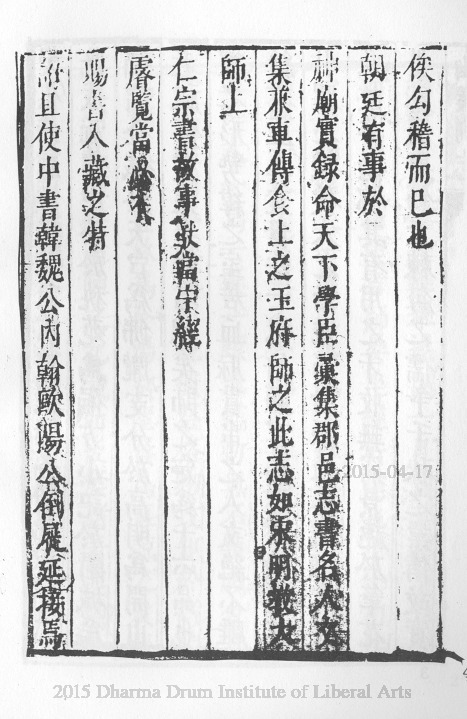 俟勾稽而已也
朝廷有事於
神廟實錄命天下學臣彙集郡邑志書名人文
集求車傳會上之玉府師之此志如宋明教大
師上
仁宗書故事當宋經
膚覽當
賜書入藏之特
詔且使中書韓魏公內翰歐陽公倒屣延接焉
2015-04-17
2015 Dharma Drum Institute of Liberal Arts